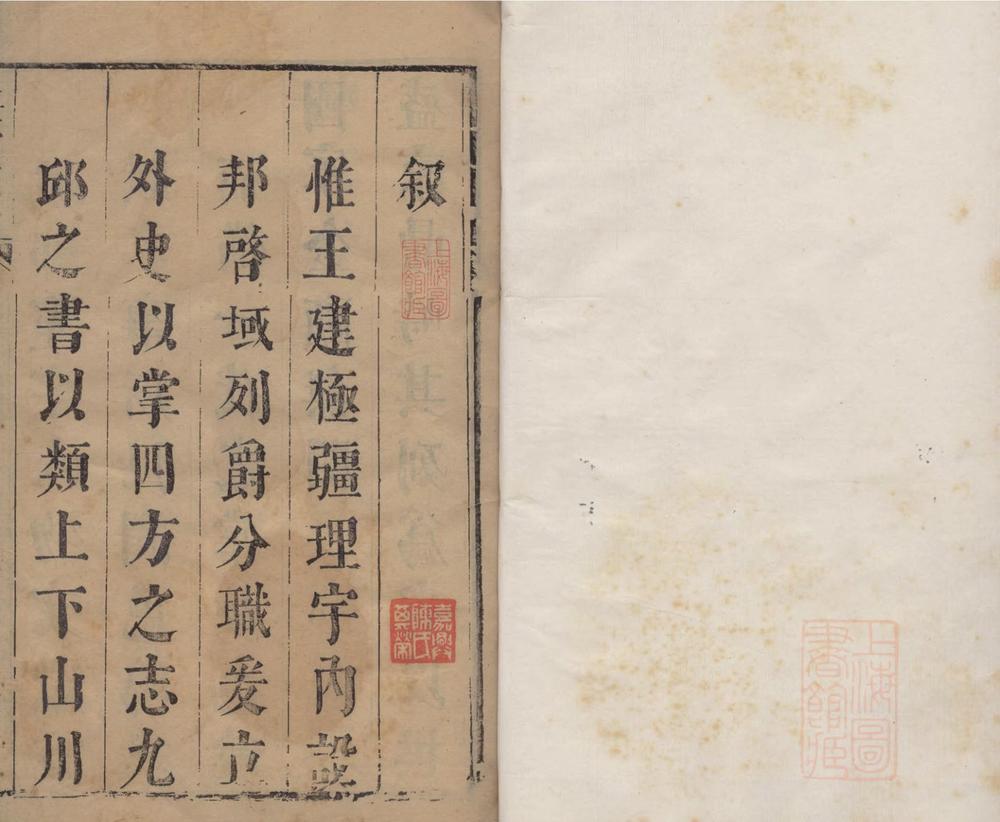 叙
惟王建極疆理宇內設
邦啓域列爵分職爰立
外史以掌四方之志九
邱之書以類上下山川
上海圖書館藏
嘉興陳氏
上海圖書館藏